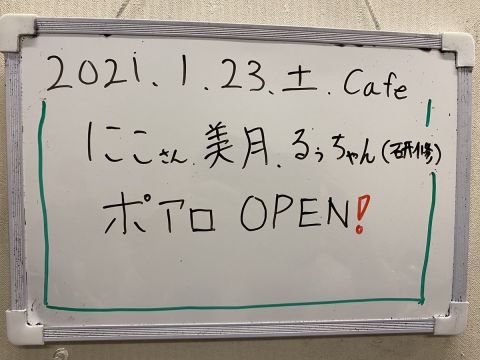 2021.1.23.土.Cafe
にこさん.美月.るぅちゃん(研修)
ポアロ OPEN!